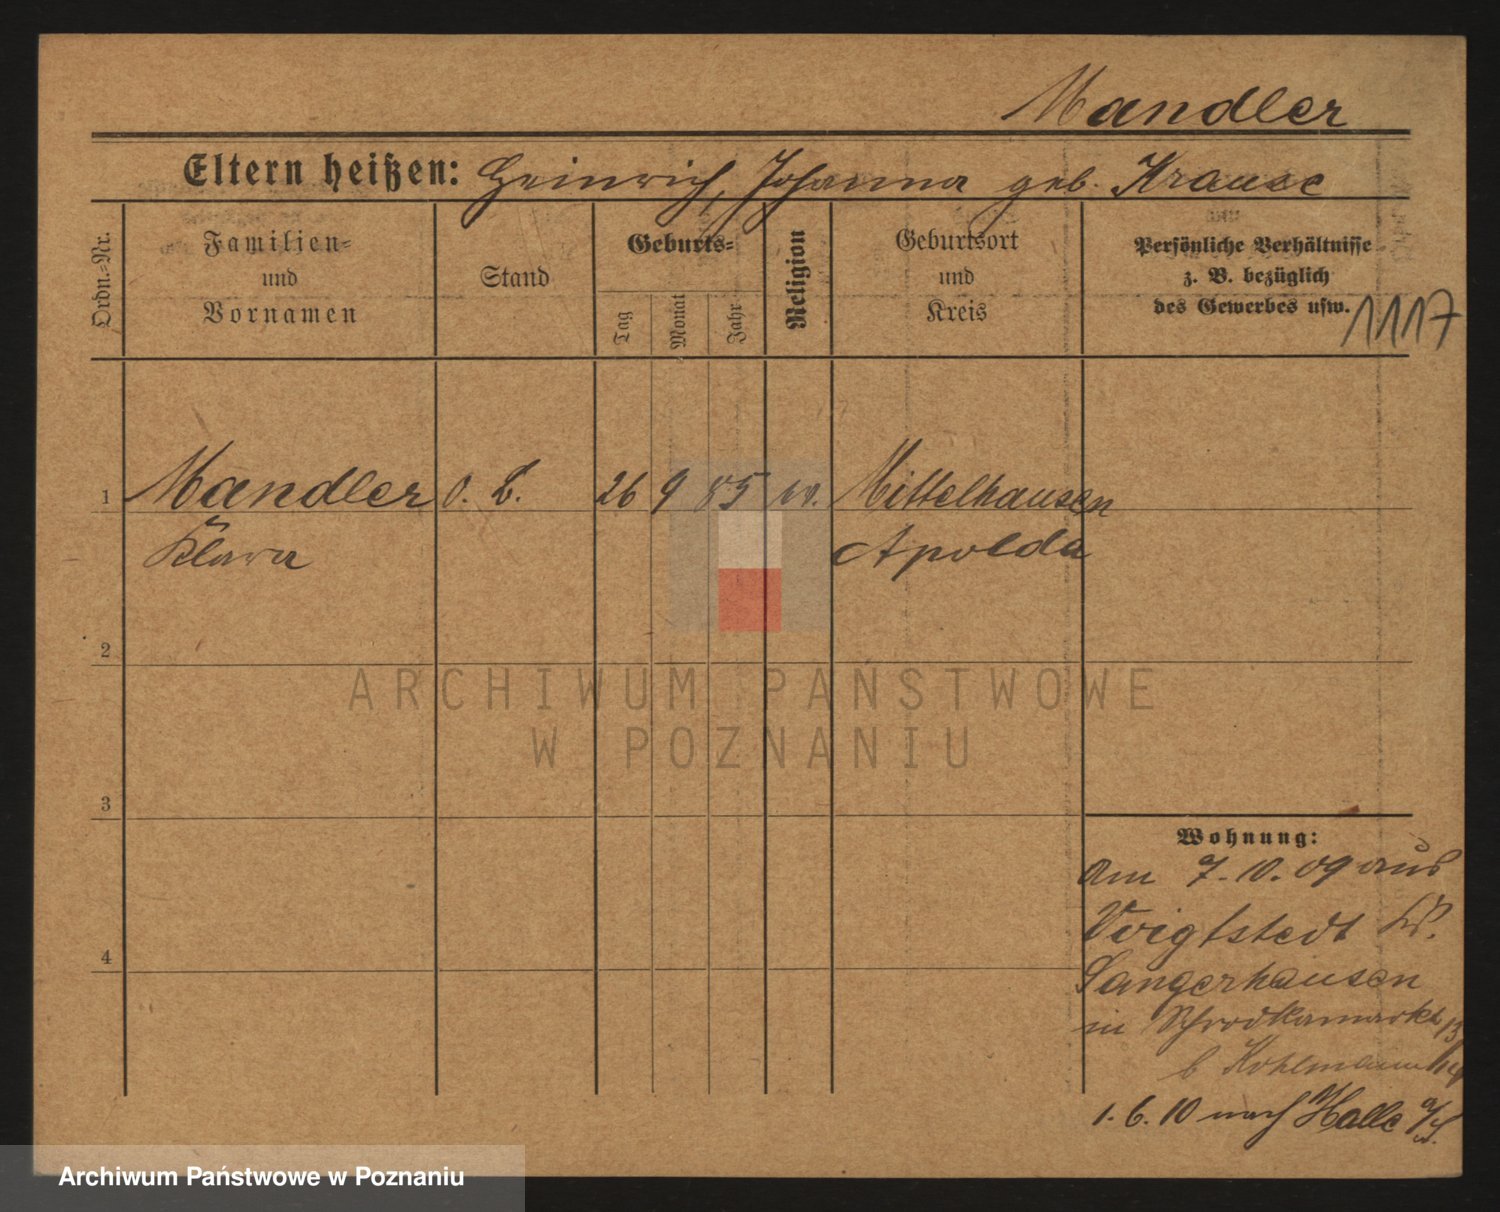 Mandler
Eltern heißen: Heinrich, Johanna geb. Krause
Ordn.-Nr.
Familien-
und
Vornamen
Stand
Geburts-
Tag
Monat
Jahr
Religion
Geburtsort
und
Kreis
Persönliche Verhältnisse
z. B. bezüglich
des Gewerbes usw.
1117
1 Mandler o. B. 26 9 85 ev. Mittelhausen
Klara Apolda
2
ARCHIWUM PAŃSTWOWE
W POZNANIU
3
Wohnung:
Am 7.10.09 aus
Voigtstedt Kr.
4
Sangerhausen
in Schrodkamarkt 13/14
b Kohlmann
1.6.10 nach Halle a/S.
Archiwum Państwowe w Poznaniu